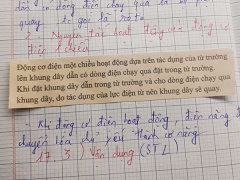 Nguyên tắc hoạt động
Động cơ điện một chiều hoạt động dựa trên tác dụng của từ trường
lên khung dây dẫn có dòng điện chạy qua đặt trong từ trường.
Khi đặt khung dây dẫn trong từ trường và cho dòng điện chạy qua
khung dây, do tác dụng của lực điện từ nên khung dây sẽ quay.
- Khi động cơ điện hoạt động, điện năng đc
chuyển hóa chủ yếu thành cơ năng
17.3) Vận dụng (STL)